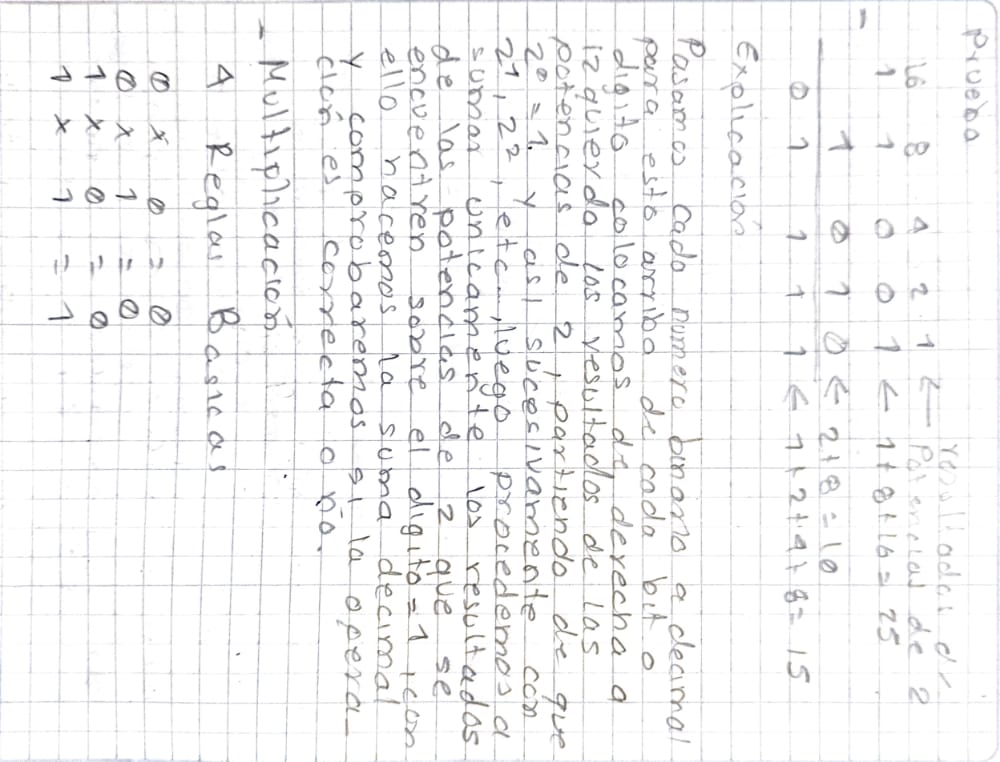 Prueba
resultados de
16 8 4 2 1 ← Potencias de 2
- 1 1 0 0 1 ← 1+8+16 = 25
1 0 1 0 ← 2+8 = 10
0 1 1 1 1 ← 1+2+4+8 = 15
Explicación
Pasamos cada numero binario a decimal
para esto arriba de cada bit o
digito colocamos de derecha a
izquierda los resultados de las
potencias de 2, partiendo de que
2⁰ = 1. y asi sucesivamente con
2¹, 2², etc..., luego procedemos a
sumar unicamente los resultados
de las potencias de 2 que se
encuentren sobre el digito = 1, con
ello hacemos la suma decimal
y comprobaremos si la opera_
ción es correcta o no.
- Multiplicación
4 Reglas Basicas
0 x 0 = 0
0 x 1 = 0
1 x 0 = 0
1 x 1 = 1